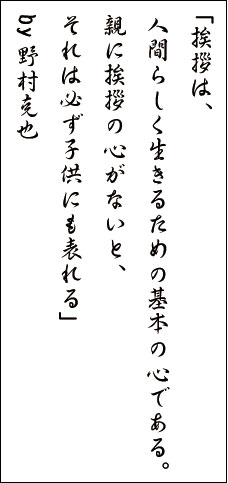 「挨拶は、
人間らしく生きるための基本の心である。
親に挨拶の心がないと、
それは必ず子供にも表れる」
by 野村克也